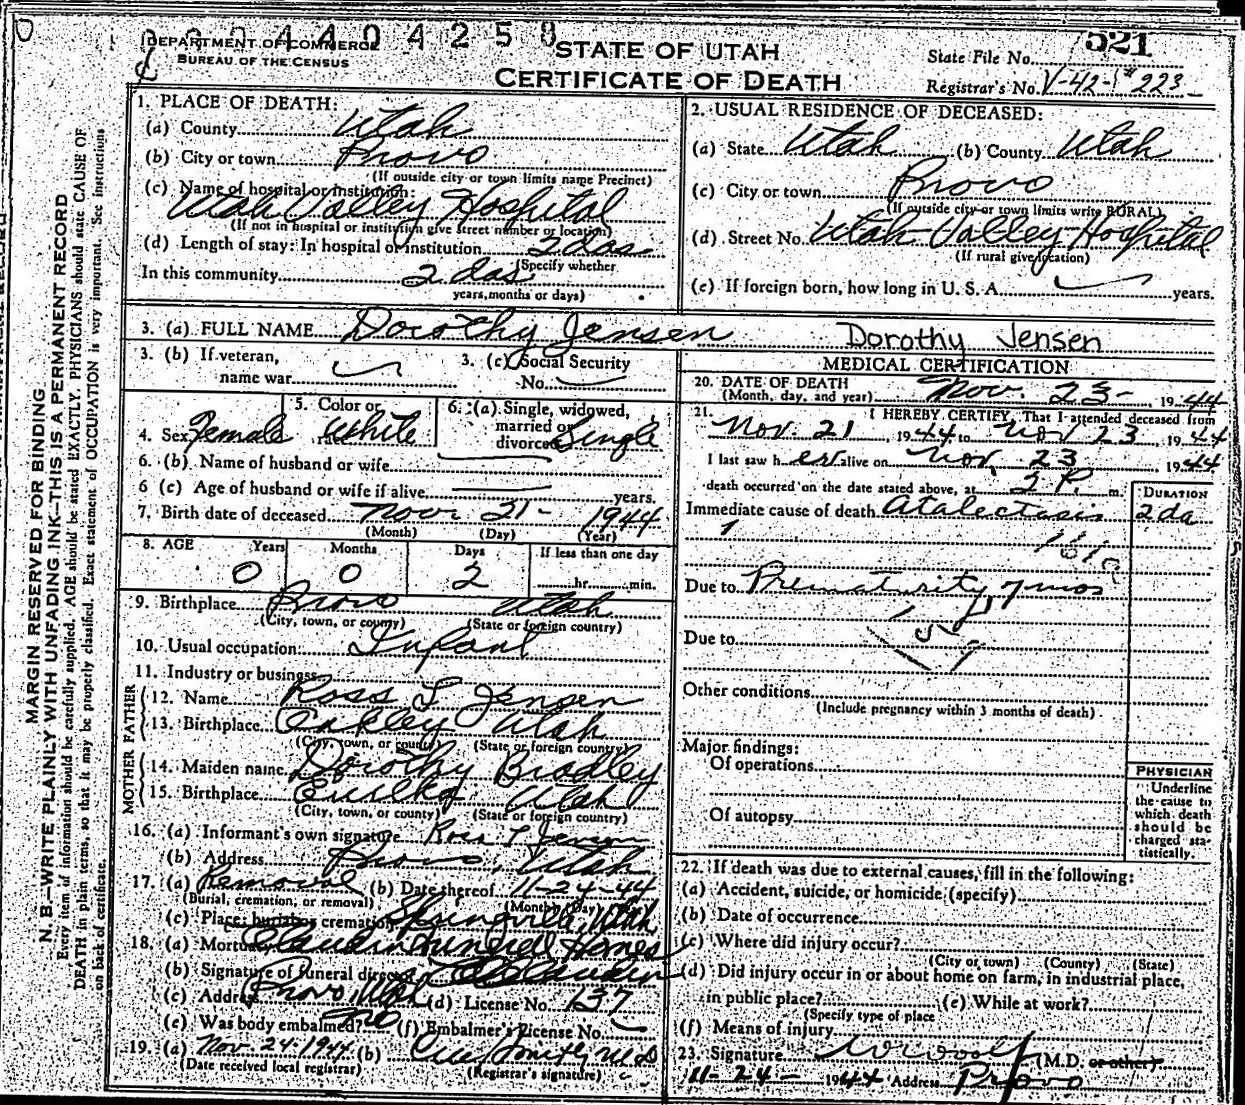 4404258
DEPARTMENT OF COMMERCE
BUREAU OF THE CENSUS
STATE OF UTAH
CERTIFICATE OF DEATH
State File No. 521
Registrar's No. V-42-1 #223-
MARGIN RESERVED FOR BINDING
N. B.—WRITE PLAINLY WITH UNFADING INK—THIS IS A PERMANENT RECORD
Every item of information should be carefully supplied. AGE should be stated EXACTLY. PHYSICIANS should state CAUSE OF
DEATH in plain terms, so that it may be properly classified. Exact statement of OCCUPATION is very important. See instructions
on back of certificate.
1. PLACE OF DEATH:
(a) County Utah
(b) City or town Provo
(If outside city or town limits name Precinct)
(c) Name of hospital or institution:
Utah Valley Hospital
(If not in hospital or institution give street number or location)
(d) Length of stay: In hospital or institution 2 das
(Specify whether
In this community 2 das
years, months or days)
2. USUAL RESIDENCE OF DECEASED:
(a) State Utah (b) County Utah
(c) City or town Provo
(If outside city or town limits write RURAL)
(d) Street No. Utah Valley Hospital
(If rural give location)
(e) If foreign born, how long in U. S. A. years.
3. (a) FULL NAME Dorothy Jensen Dorothy Jensen
3. (b) If veteran,
name war
3. (c) Social Security
No.
4. Sex Female
5. Color or
race White
6. (a) Single, widowed,
married or
divorced Single
6. (b) Name of husband or wife
6 (c) Age of husband or wife if alive years.
7. Birth date of deceased Nov 21- 1944
(Month) (Day) (Year)
8. AGE Years Months Days If less than one day
0 0 2 hr. min.
9. Birthplace Provo Utah
(City, town, or county) (State or foreign country)
10. Usual occupation Infant
11. Industry or business
FATHER
12. Name Ross L Jensen
13. Birthplace Oakley Utah
(City, town, or county) (State or foreign country)
MOTHER
14. Maiden name Dorothy Bradley
15. Birthplace Eureka Utah
(City, town, or county) (State or foreign country)
16. (a) Informant's own signature Ross L Jensen
(b) Address Provo, Utah
17. (a) Removal (b) Date thereof 11-24-44
(Burial, cremation, or removal) (Month) (Day)
(c) Place: burial or cremation Springville, Utah
18. (a) Mortuary Claudin Funeral Homes
(b) Signature of funeral director Claudin
(c) Address Provo Utah (d) License No. 137
(e) Was body embalmed? no (f) Embalmer's License No.
19. (a) Nov. 24-1944 (b) M D
(Date received local registrar) (Registrar's signature)
MEDICAL CERTIFICATION
20. DATE OF DEATH
(Month, day, and year) Nov. 23- 1944
21. I HEREBY CERTIFY, That I attended deceased from
Nov. 21 1944 to Nov 23 1944
I last saw her alive on Nov. 23 1944
death occurred on the date stated above, at P. m.
DURATION
Immediate cause of death Atalectasis 2 da
1
Due to Prematurity 7 mos
Due to
Other conditions
(Include pregnancy within 3 months of death)
Major findings:
Of operations
Of autopsy
PHYSICIAN
Underline
the cause to
which death
should be
charged sta-
tistically.
22. If death was due to external causes, fill in the following:
(a) Accident, suicide, or homicide (specify)
(b) Date of occurrence
(c) Where did injury occur?
(City or town) (County) (State)
(d) Did injury occur in or about home on farm, in industrial place,
in public place? (e) While at work?
(Specify type of place
(f) Means of injury
23. Signature W Woolf (M.D. or other)
11-24- 1944 Address Provo